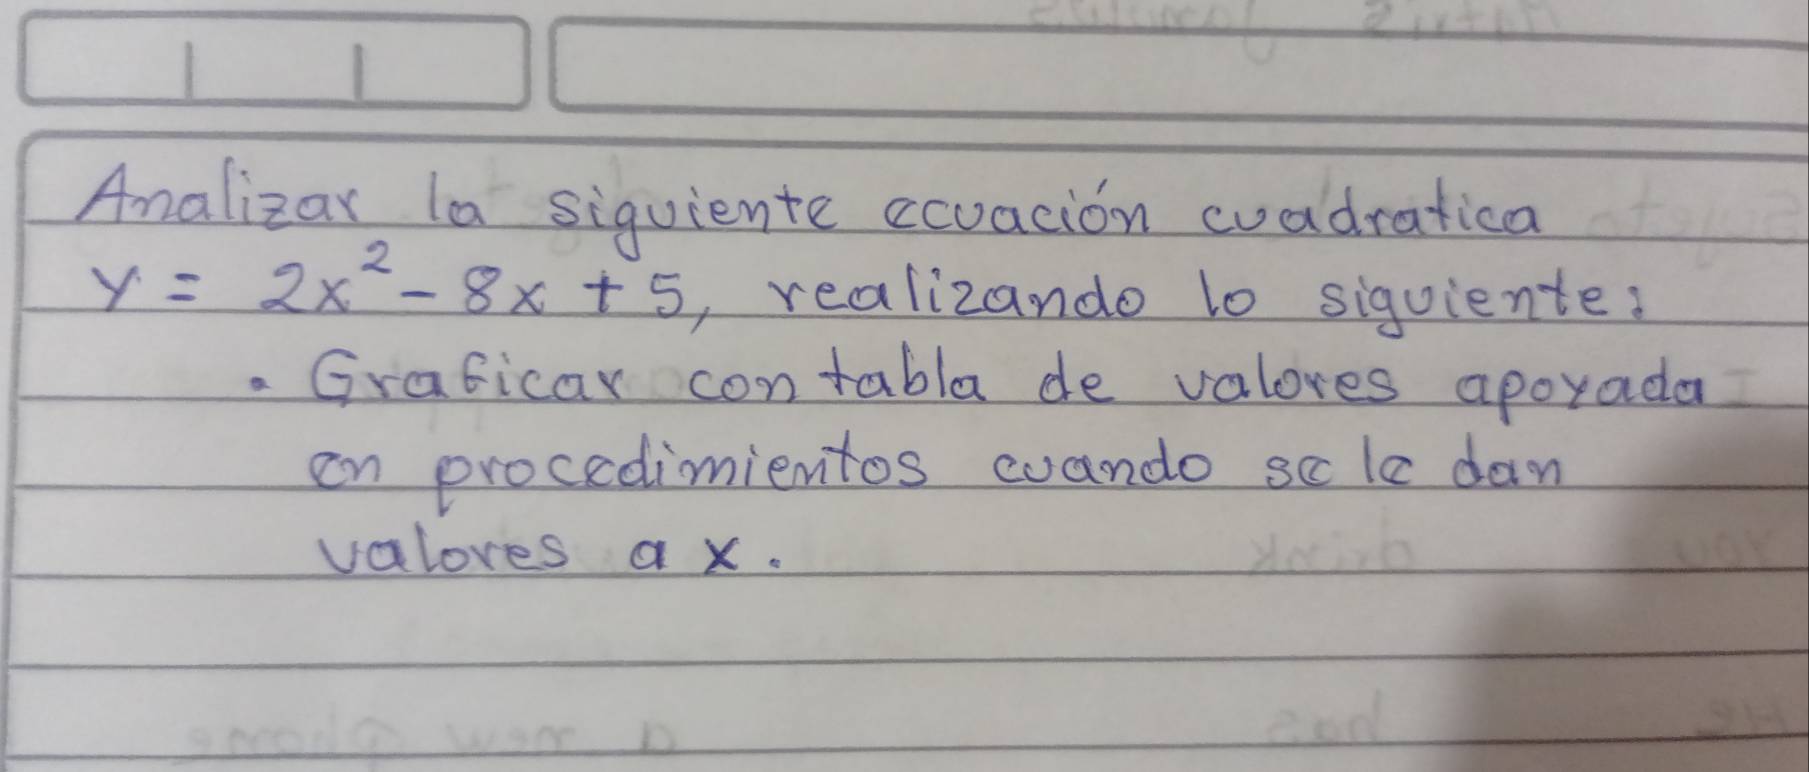 Analizar la siguiente ecuación cuadratica
y = 2x² - 8x + 5, realizando lo siguiente:
• Graficar con tabla de valores apoyada
en procedimientos cuando se le dan
valores a x.